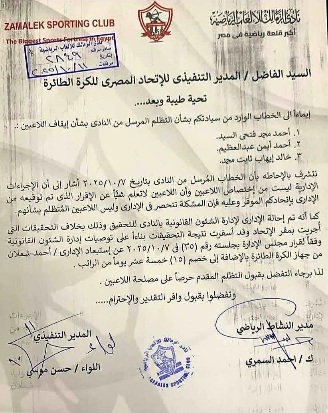 ZAMALEK SPORTING CLUB
نادي الزمالك للألعاب الرياضية
The Biggest Sports Fortress in Egypt
أكبر قلعة رياضية في مصر
٢٨٤٩
السيد الفاضل / المدير التنفيذى للإتحاد المصرى للكرة الطائرة
تحية طيبة وبعد...
إيماءاً الى الخطاب الوارد من سيادتكم بشأن التظلم المرسل من النادى بشأن إيقاف اللاعبين :
١. احمد محمد فتحى السيد.
٢. أحمد أيمن عبدالعظيم.
٣. خالد إيهاب ثابت محمد.
نتشرف بالإحاطه بأن الخطاب المُرسل من النادى بتاريخ ٢٠٢٥/١٠/٧ أشار إلى أن الإجراءات
الإدارية ليست من إختصاص اللاعبين وأن اللاعبين لاتعلم شئ عن الإقرار الذى تم توقيعه من
إدارى بإتحادكم الموقر وعليه فإن المشكلة تنحصر فى الإدارى وليس اللاعبين المتظلم بشأنهم
كما أنه تم إحالة الإدارى لإدارة الشئون القانونية بالنادى للتحقيق وذلك بخلاف التحقيقات التى
أجريت بمقر الإتحاد وقد أسفرت نتيجة التحقيقات بناءاً على توصيات إدارة الشئون القانونية
وفقاً لقرار مجلس الإدارة بجلسته رقم (٣٥) فى ٢٠٢٥/١٠/٧ عن إستبعاد الإدارى / احمد شعلان
من جهاز الكرة الطائرة بالإضافة إلى خصم (١٥) خمسة عشر يوماً من الراتب.
لذا برجاء التفضل بقبول التظلم المقدم حرصاً على مصلحة اللاعبين .
وتفضلوا بقبول وافر التقدير والإحترام....
مدير النشاط الرياضي
المدير التنفيذى
ك / احمد السمري
اللواء / حسن موسى
ZAMALEK SPORTING CLUB